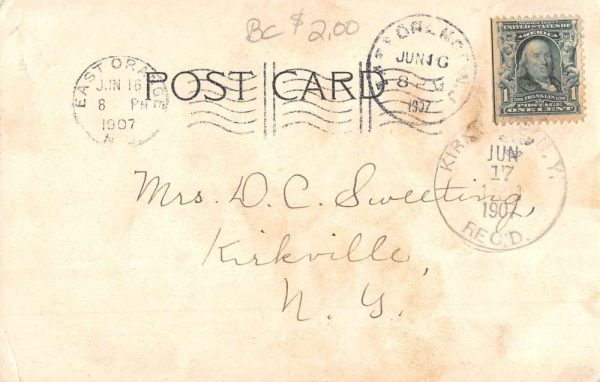 BC $2.00
EAST ORANGE
JUN 16
8 PM
1907
N.J.
POST CARD
JUN 16
8
1907
UNITED STATES OF AMERICA
1
FRANKLIN
POSTAGE
ONE CENT
KIRKVILLE N.Y.
JUN
17
1907
REC'D.
Mrs. D. C. Sweeting,
Kirkville,
N. Y.